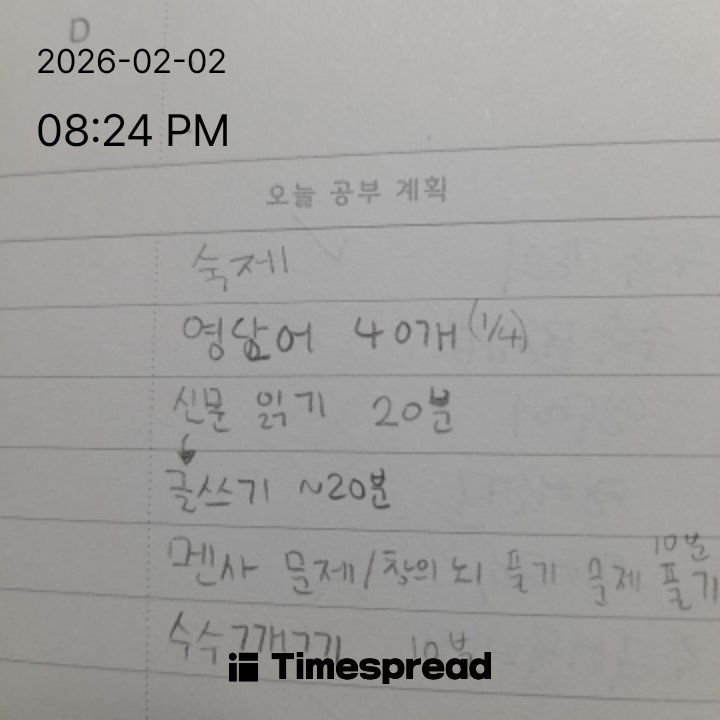 D
2026-02-02
08:24 PM
오늘 공부 계획
숙제
영단어 40개 (1/4)
신문 읽기 20분
글쓰기 ~20분
멘사 문제/창의 뇌 풀기 문제 풀기 10분
10분
Timespread